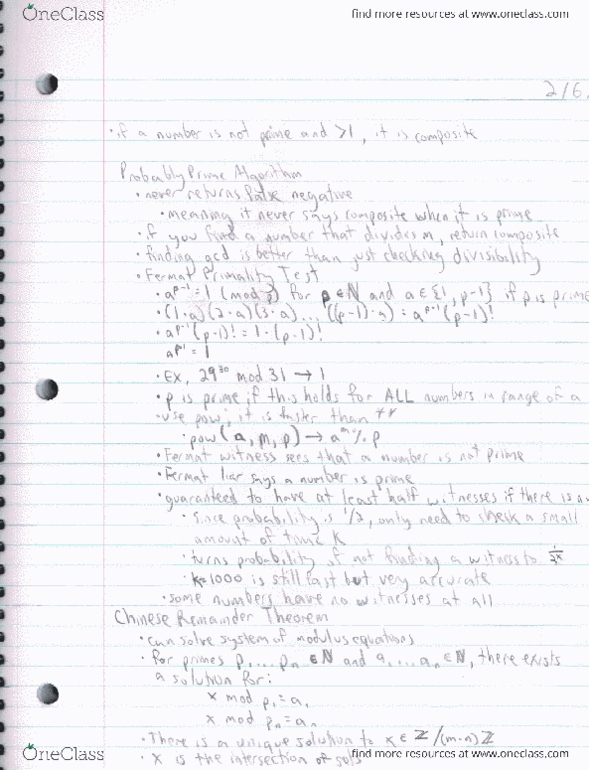 OneClass
find more resources at www.oneclass.com
2/6
· if a number is not prime and >1, it is composite
Probably Prime Algorithm
· never returns false negative
· meaning it never says composite when it is prime
· if you find a number that divides m, return composite
· finding gcd is better than just checking divisibility
· Fermat Primality Test
· a^p-1 = 1 (mod p) for p ∈ ℕ and a ∈ {1, p-1} if p is prime
· (1·a)(2·a)(3·a)...((p-1)·a) = a^p-1 (p-1)!
· a^p-1 (p-1)! = 1·(p-1)!
a^p-1 = 1
· Ex, 29^30 mod 31 → 1
· p is prime if this holds for ALL numbers in range of a
· use pow; it is faster than **
· pow(a, m, p) → a^m % p
· Fermat witness sees that a number is not prime
· Fermat liar says a number is prime
· guaranteed to have at least half witnesses if there is a
· since probability is 1/2, only need to check a small
amount of times k
· turns probability of not finding a witness to
· k=1000 is still fast but very accurate
· some numbers have no witnesses at all
Chinese Remainder Theorem
· can solve system of modulus equations
· for primes p₁...pₙ ∈ ℕ and a₁...aₙ ∈ ℕ, there exists
a solution for:
x mod p₁ = a₁
x mod pₙ = aₙ
· There is a unique solution to x ∈ ℤ/(m·n)ℤ
· x is the intersection of sols
OneClass
find more resources at www.oneclass.com